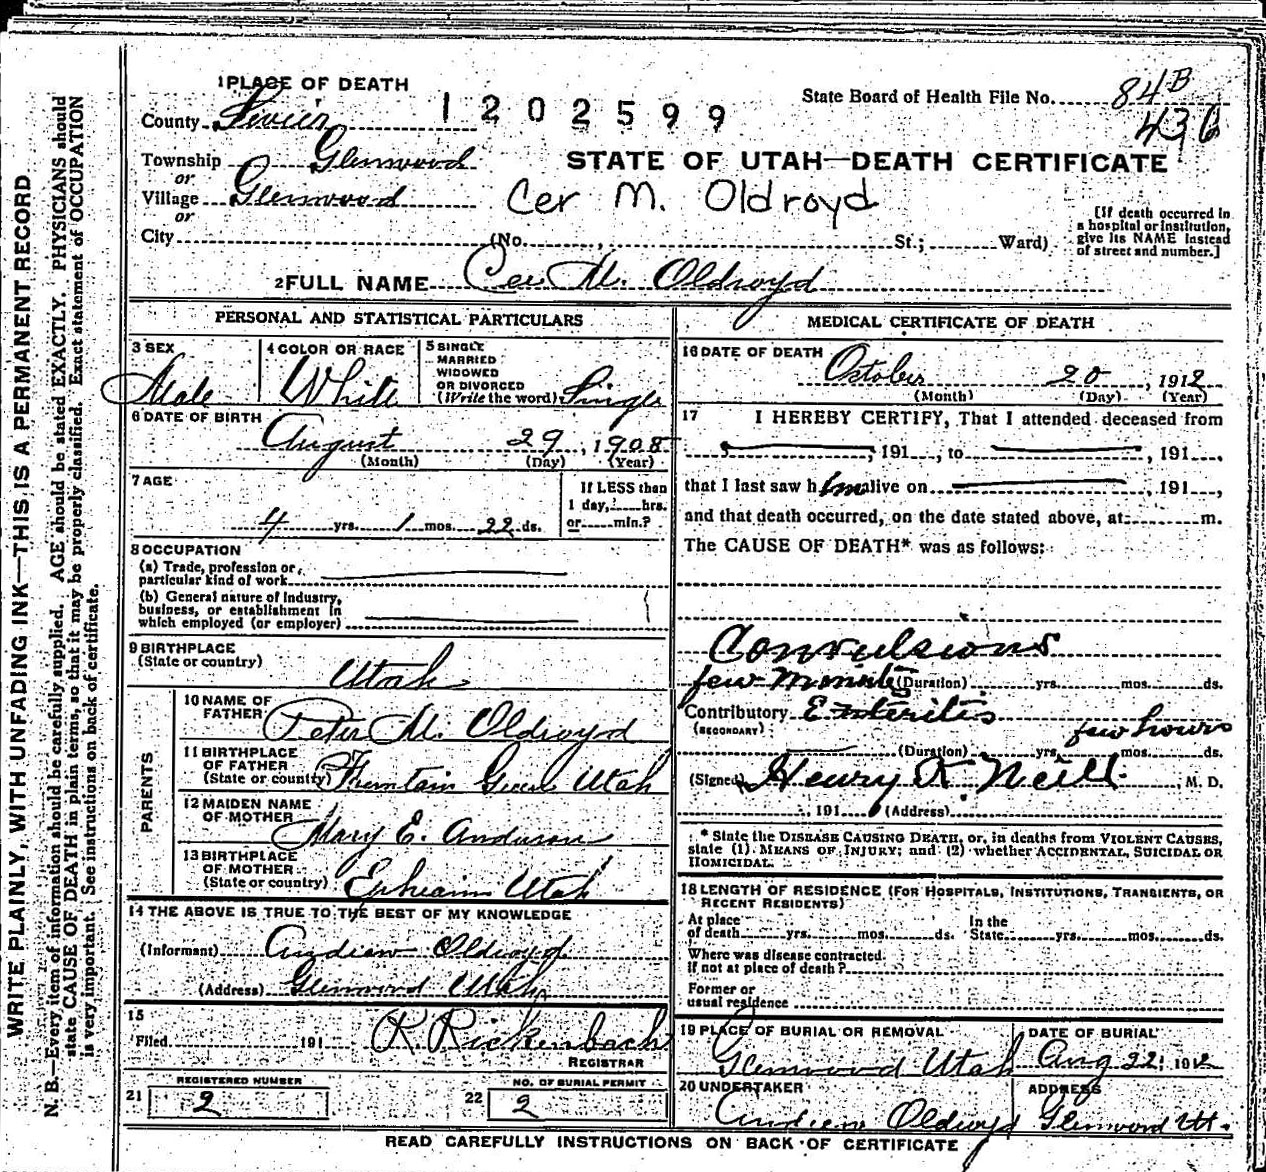 1 PLACE OF DEATH
1202599
State Board of Health File No. 84B
436
County Sevier
Township Glenwood
or
STATE OF UTAH—DEATH CERTIFICATE
Village Glenwood
or
Cer M. Oldroyd
City (No. , St.; Ward)
[If death occurred in
a hospital or institution,
give its NAME instead
of street and number.]
2 FULL NAME Cer M. Oldroyd
PERSONAL AND STATISTICAL PARTICULARS
3 SEX
Male
4 COLOR OR RACE
White
5 SINGLE
MARRIED
WIDOWED
OR DIVORCED
(Write the word) Single
6 DATE OF BIRTH
August 29, 1908
(Month) (Day) (Year)
7 AGE
4 yrs. 1 mos. 22 ds.
If LESS than
1 day, hrs.
or min.?
8 OCCUPATION
(a) Trade, profession or,
particular kind of work
(b) General nature of Industry,
business, or establishment in
which employed (or employer)
9 BIRTHPLACE
(State or country)
Utah
PARENTS
10 NAME OF
FATHER
Peter M. Oldroyd
11 BIRTHPLACE
OF FATHER
(State or country) Fountain Green Utah
12 MAIDEN NAME
OF MOTHER
Mary E. Anderson
13 BIRTHPLACE
OF MOTHER
(State or country) Ephraim Utah
14 THE ABOVE IS TRUE TO THE BEST OF MY KNOWLEDGE
(Informant) Andrew Oldroyd
(Address) Glenwood Utah
15
Filed 191 R. Rickenbach
REGISTRAR
REGISTERED NUMBER
21 2
NO. OF BURIAL PERMIT
22 2
MEDICAL CERTIFICATE OF DEATH
16 DATE OF DEATH
October 20, 1912
(Month) (Day) (Year)
17 I HEREBY CERTIFY, That I attended deceased from
, 191 , to , 191 ,
that I last saw him alive on , 191 ,
and that death occurred, on the date stated above, at m.
The CAUSE OF DEATH* was as follows:
Convulsions
few minutes (Duration) yrs. mos. ds.
Contributory Enteritis
(SECONDARY) few hours
(Duration) yrs. mos. ds.
(Signed) Henry K. Neill, M. D.
, 191 (Address)
* State the DISEASE CAUSING DEATH, or, in deaths from VIOLENT CAUSES,
state (1) MEANS OF INJURY; and (2) whether ACCIDENTAL, SUICIDAL OR
HOMICIDAL.
18 LENGTH OF RESIDENCE (FOR HOSPITALS, INSTITUTIONS, TRANSIENTS, OR
RECENT RESIDENTS)
At place
of death yrs. mos. ds.
In the
State yrs. mos. ds.
Where was disease contracted
if not at place of death?
Former or
usual residence
19 PLACE OF BURIAL OR REMOVAL
Glenwood Utah
DATE OF BURIAL
Aug 22, 1912
20 UNDERTAKER
Andrew Oldroyd
ADDRESS
Glenwood Ut.
READ CAREFULLY INSTRUCTIONS ON BACK OF CERTIFICATE
WRITE PLAINLY, WITH UNFADING INK—THIS IS A PERMANENT RECORD
N. B.—Every item of information should be carefully supplied. AGE should be stated EXACTLY. PHYSICIANS should
state CAUSE OF DEATH in plain terms, so that it may be properly classified. Exact statement of OCCUPATION
is very important. See instructions on back of certificate.